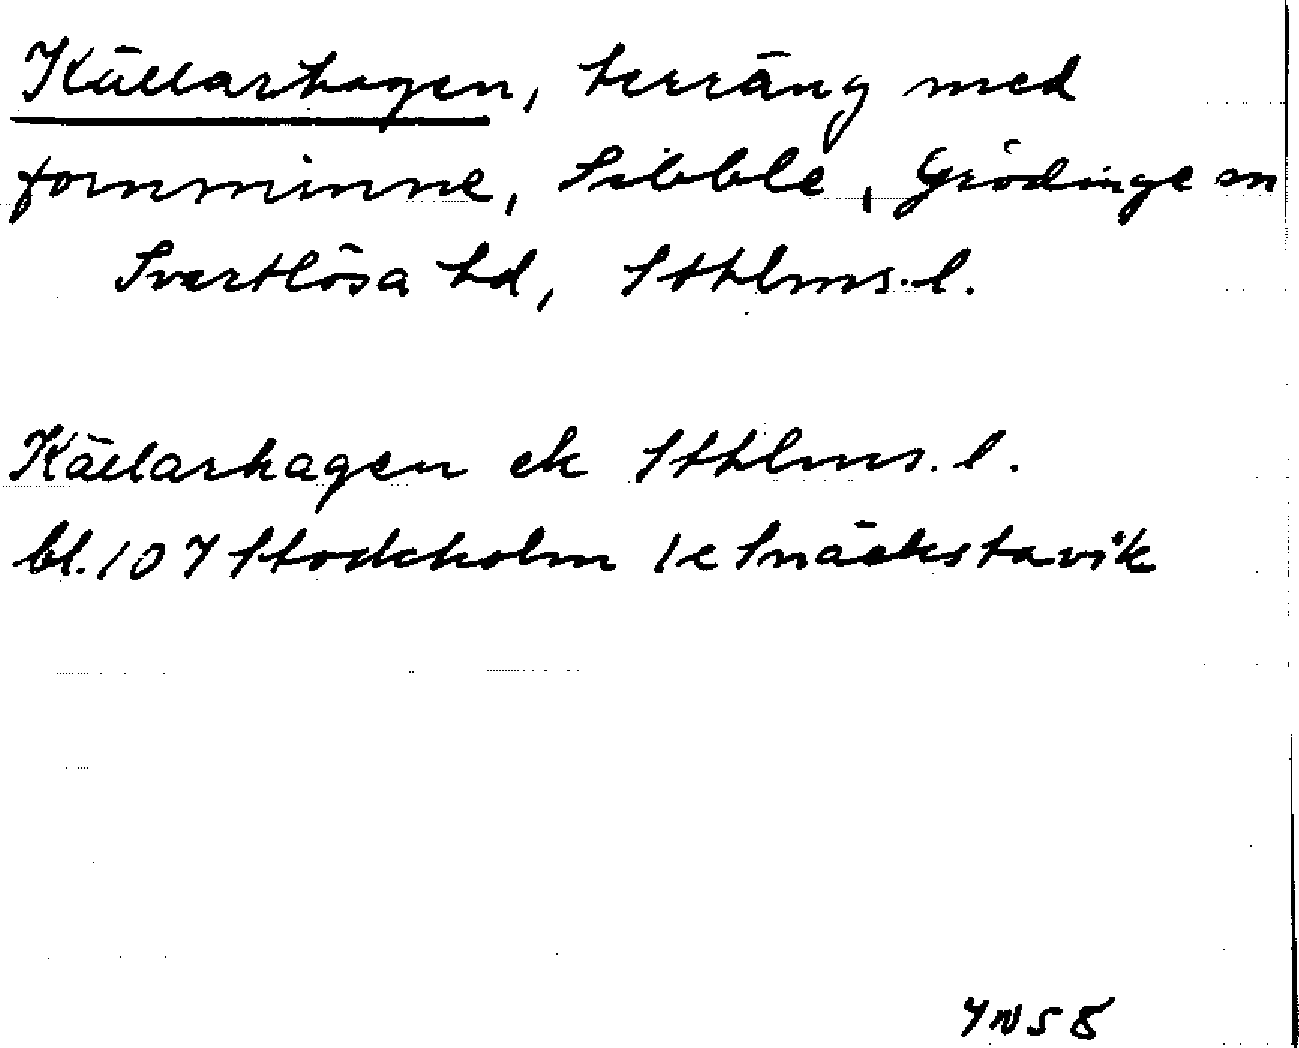 Källarhagen, terräng med
fornminne, Sibble, Grödinge sn
Svartlösa hd, Sthlms. l.
Källarhagen ek Sthlms. l.
bl. 107 Stockholm 1e Snäckstavik
YNSB